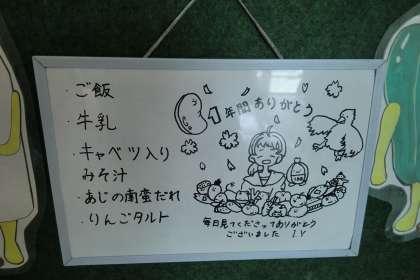 ・ご飯
・牛乳
・キャベツ入り
みそ汁
・あじの南蛮だれ
・りんごタルト
1年間ありがとう
毎日見てくださってありがとう
ございました I.Y